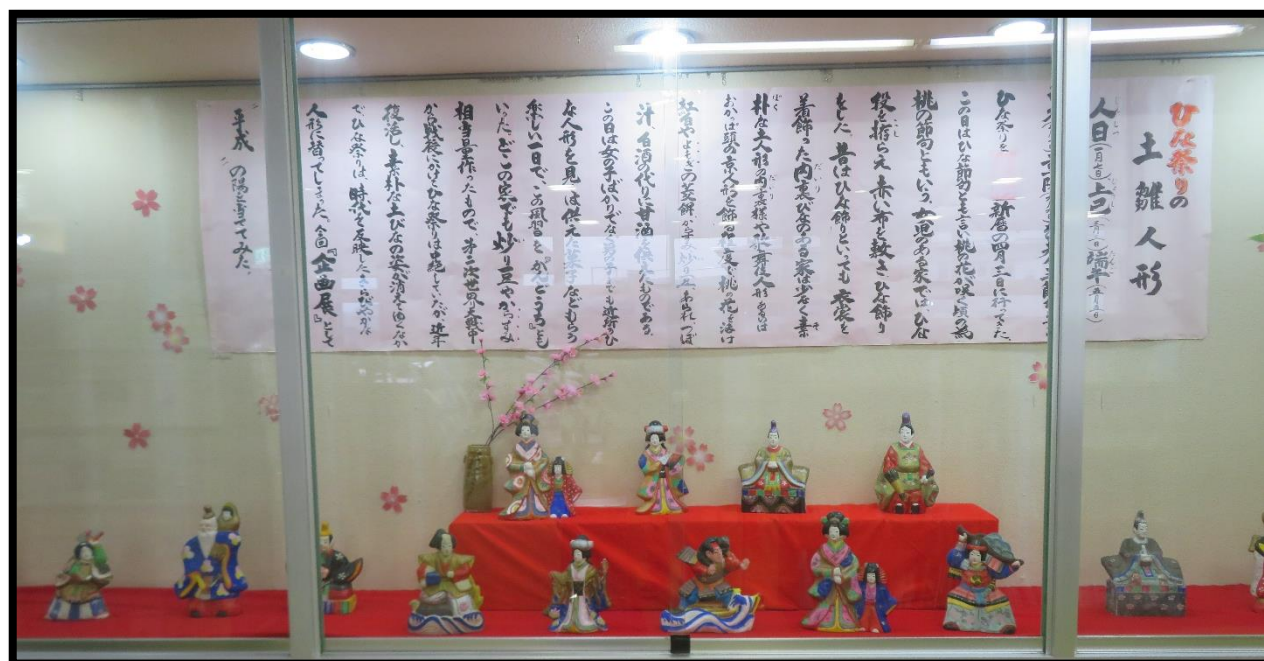 ひな祭りの
土雛人形
人日(一月七日)上巳(三月三日)端午(五月五日)
ひな祭りを 新暦の四月三日に行ってきた、
この日はひな節句とも言い桃の花が咲く頃の為
桃の節句ともいう、女児のある家では、ひな
段を拵らえ赤い布を敷きひな飾り
をした、昔はひな飾りといっても衣裳を
着飾った内裏びなのある家は少なく素
朴な土人形の内裏様や歌舞伎人形あるいは
おかっぱ頭の京人形を飾る程度で桃の花を活け
汁、白酒の代りに甘酒を供えたものである。
この日は女の子ばかりでなく男の子も近所のひ
な人形を見ては供えた菓子などもらう
楽しい一日で、この風習を『がんどうち』とも
いった、どこの家でも炒り豆やかっすみ
相当量作ったもので、第二次世界大戦中
から戦後にかけひな祭りは中絶していたが、近年
復活し、素朴な土びなの姿が消えてゆくなか
で、ひな祭りは、時代を反映したきらびやかな
人形に替ってしまった、今回『企画展』として
平成 の陽を当ててみた。